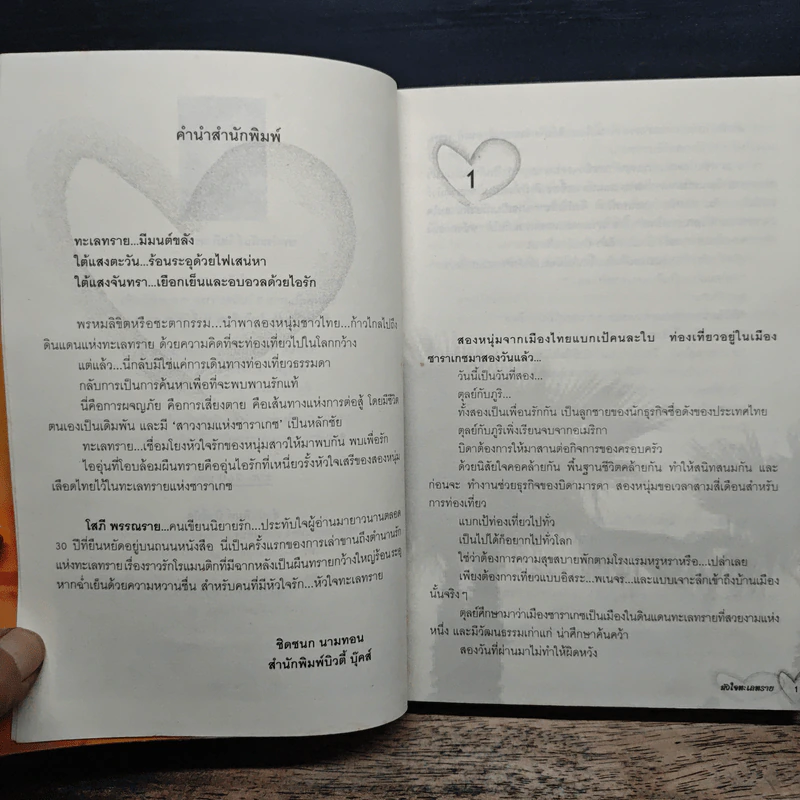 คำนำสำนักพิมพ์
ทะเลทราย...มีมนต์ขลัง
ใต้แสงตะวัน...ร้อนระอุด้วยไฟเสน่หา
ใต้แสงจันทรา...เยือกเย็นและอบอวลด้วยไอรัก
พรหมลิขิตหรือชะตากรรม...นำพาสองหนุ่มชาวไทย...ก้าวไกลไปถึง
ดินแดนแห่งทะเลทราย ด้วยความคิดที่จะท่องเที่ยวไปในโลกกว้าง
แต่แล้ว...นี่กลับมิใช่แค่การเดินทางท่องเที่ยวธรรมดา
กลับการเป็นการค้นหาเพื่อที่จะพบพานรักแท้
นี่คือการผจญภัย คือการเสี่ยงตาย คือเส้นทางแห่งการต่อสู้ โดยมีชีวิต
ตนเองเป็นเดิมพัน และมี ‘สาวงามแห่งซาราเกซ’ เป็นหลักชัย
ทะเลทราย...เชื่อมโยงหัวใจรักของหนุ่มสาวให้มาพบกัน พบเพื่อรัก
ไออุ่นที่โอบล้อมผืนทรายคืออุ่นไอรักที่เหนี่ยวรั้งหัวใจเสรีของสองหนุ่ม
เลือดไทยไว้ในทะเลทรายแห่งซาราเกซ
โสภี พรรณราย...คนเขียนนิยายรัก...ประทับใจผู้อ่านมายาวนานตลอด
30 ปีที่ยืนหยัดอยู่บนถนนหนังสือ นี่เป็นครั้งแรกของการเล่าขานถึงตำนานรัก
แห่งทะเลทรายเรื่องราวรักโรแมนติกที่มีฉากหลังเป็นผืนทรายกว้างใหญ่ร้อนระอุ
หากฉ่ำเย็นด้วยความหวานชื่น สำหรับคนที่มีหัวใจรัก...หัวใจทะเลทราย
ชิตชนก นามทอน
สำนักพิมพ์บิวตี้ บุ๊คส์
1
สองหนุ่มจากเมืองไทยแบกเป้คนละใบ ท่องเที่ยวอยู่ในเมือง
ซาราเกซมาสองวันแล้ว...
วันนี้เป็นวันที่สอง...
ตุลย์กับภูริ...
ทั้งสองเป็นเพื่อนรักกัน เป็นลูกชายของนักธุรกิจชื่อดังของประเทศไทย
ตุลย์กับภูริเพิ่งเรียนจบจากอเมริกา
บิดาต้องการให้มาสานต่อกิจการของครอบครัว
ด้วยนิสัยใจคอคล้ายกัน พื้นฐานชีวิตคล้ายกัน ทำให้สนิทสนมกัน และ
ก่อนจะ ทำงานช่วยธุรกิจของบิดามารดา สองหนุ่มขอเวลาสามสี่เดือนสำหรับ
การท่องเที่ยว
แบกเป้ท่องเที่ยวไปทั่ว
เป็นไปได้ก็อยากไปทั่วโลก
ใช่ว่าต้องการความสุขสบายพักตามโรงแรมหรูหราหรือ...เปล่าเลย
เพียงต้องการเที่ยวแบบอิสระ...พเนจร...และแบบเจาะลึกเข้าถึงบ้านเมือง
นั้นจริงๆ
ตุลย์ศึกษามาว่าเมืองซาราเกซเป็นเมืองในดินแดนทะเลทรายที่สวยงามแห่ง
หนึ่ง และมีวัฒนธรรมเก่าแก่ น่าศึกษาค้นคว้า
สองวันที่ผ่านมาไม่ทำให้ผิดหวัง
หัวใจทะเลทราย 1